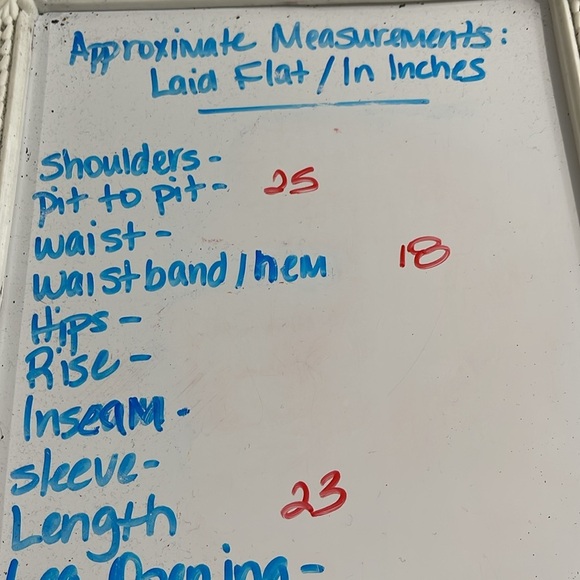 Approximate Measurements:
Laid Flat / In Inches
Shoulders -
pit to pit - 25
waist -
waistband / hem 18
Hips -
Rise -
Inseam -
sleeve -
Length 23
Leg Opening -